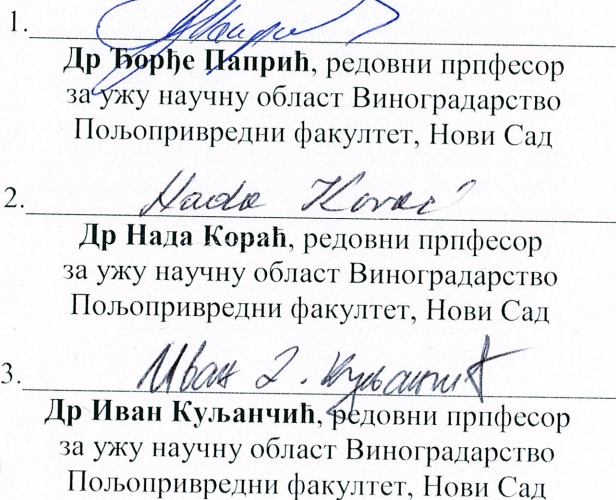 1.
Др Ђорђе Папрић, редовни прпфесор
за ужу научну област Виноградарство
Пољопривредни факултет, Нови Сад
Nada Korać
2.
Др Нада Кораћ, редовни прпфесор
за ужу научну област Виноградарство
Пољопривредни факултет, Нови Сад
3.
Др Иван Куљанчић, редовни прпфесор
за ужу научну област Виноградарство
Пољопривредни факултет, Нови Сад